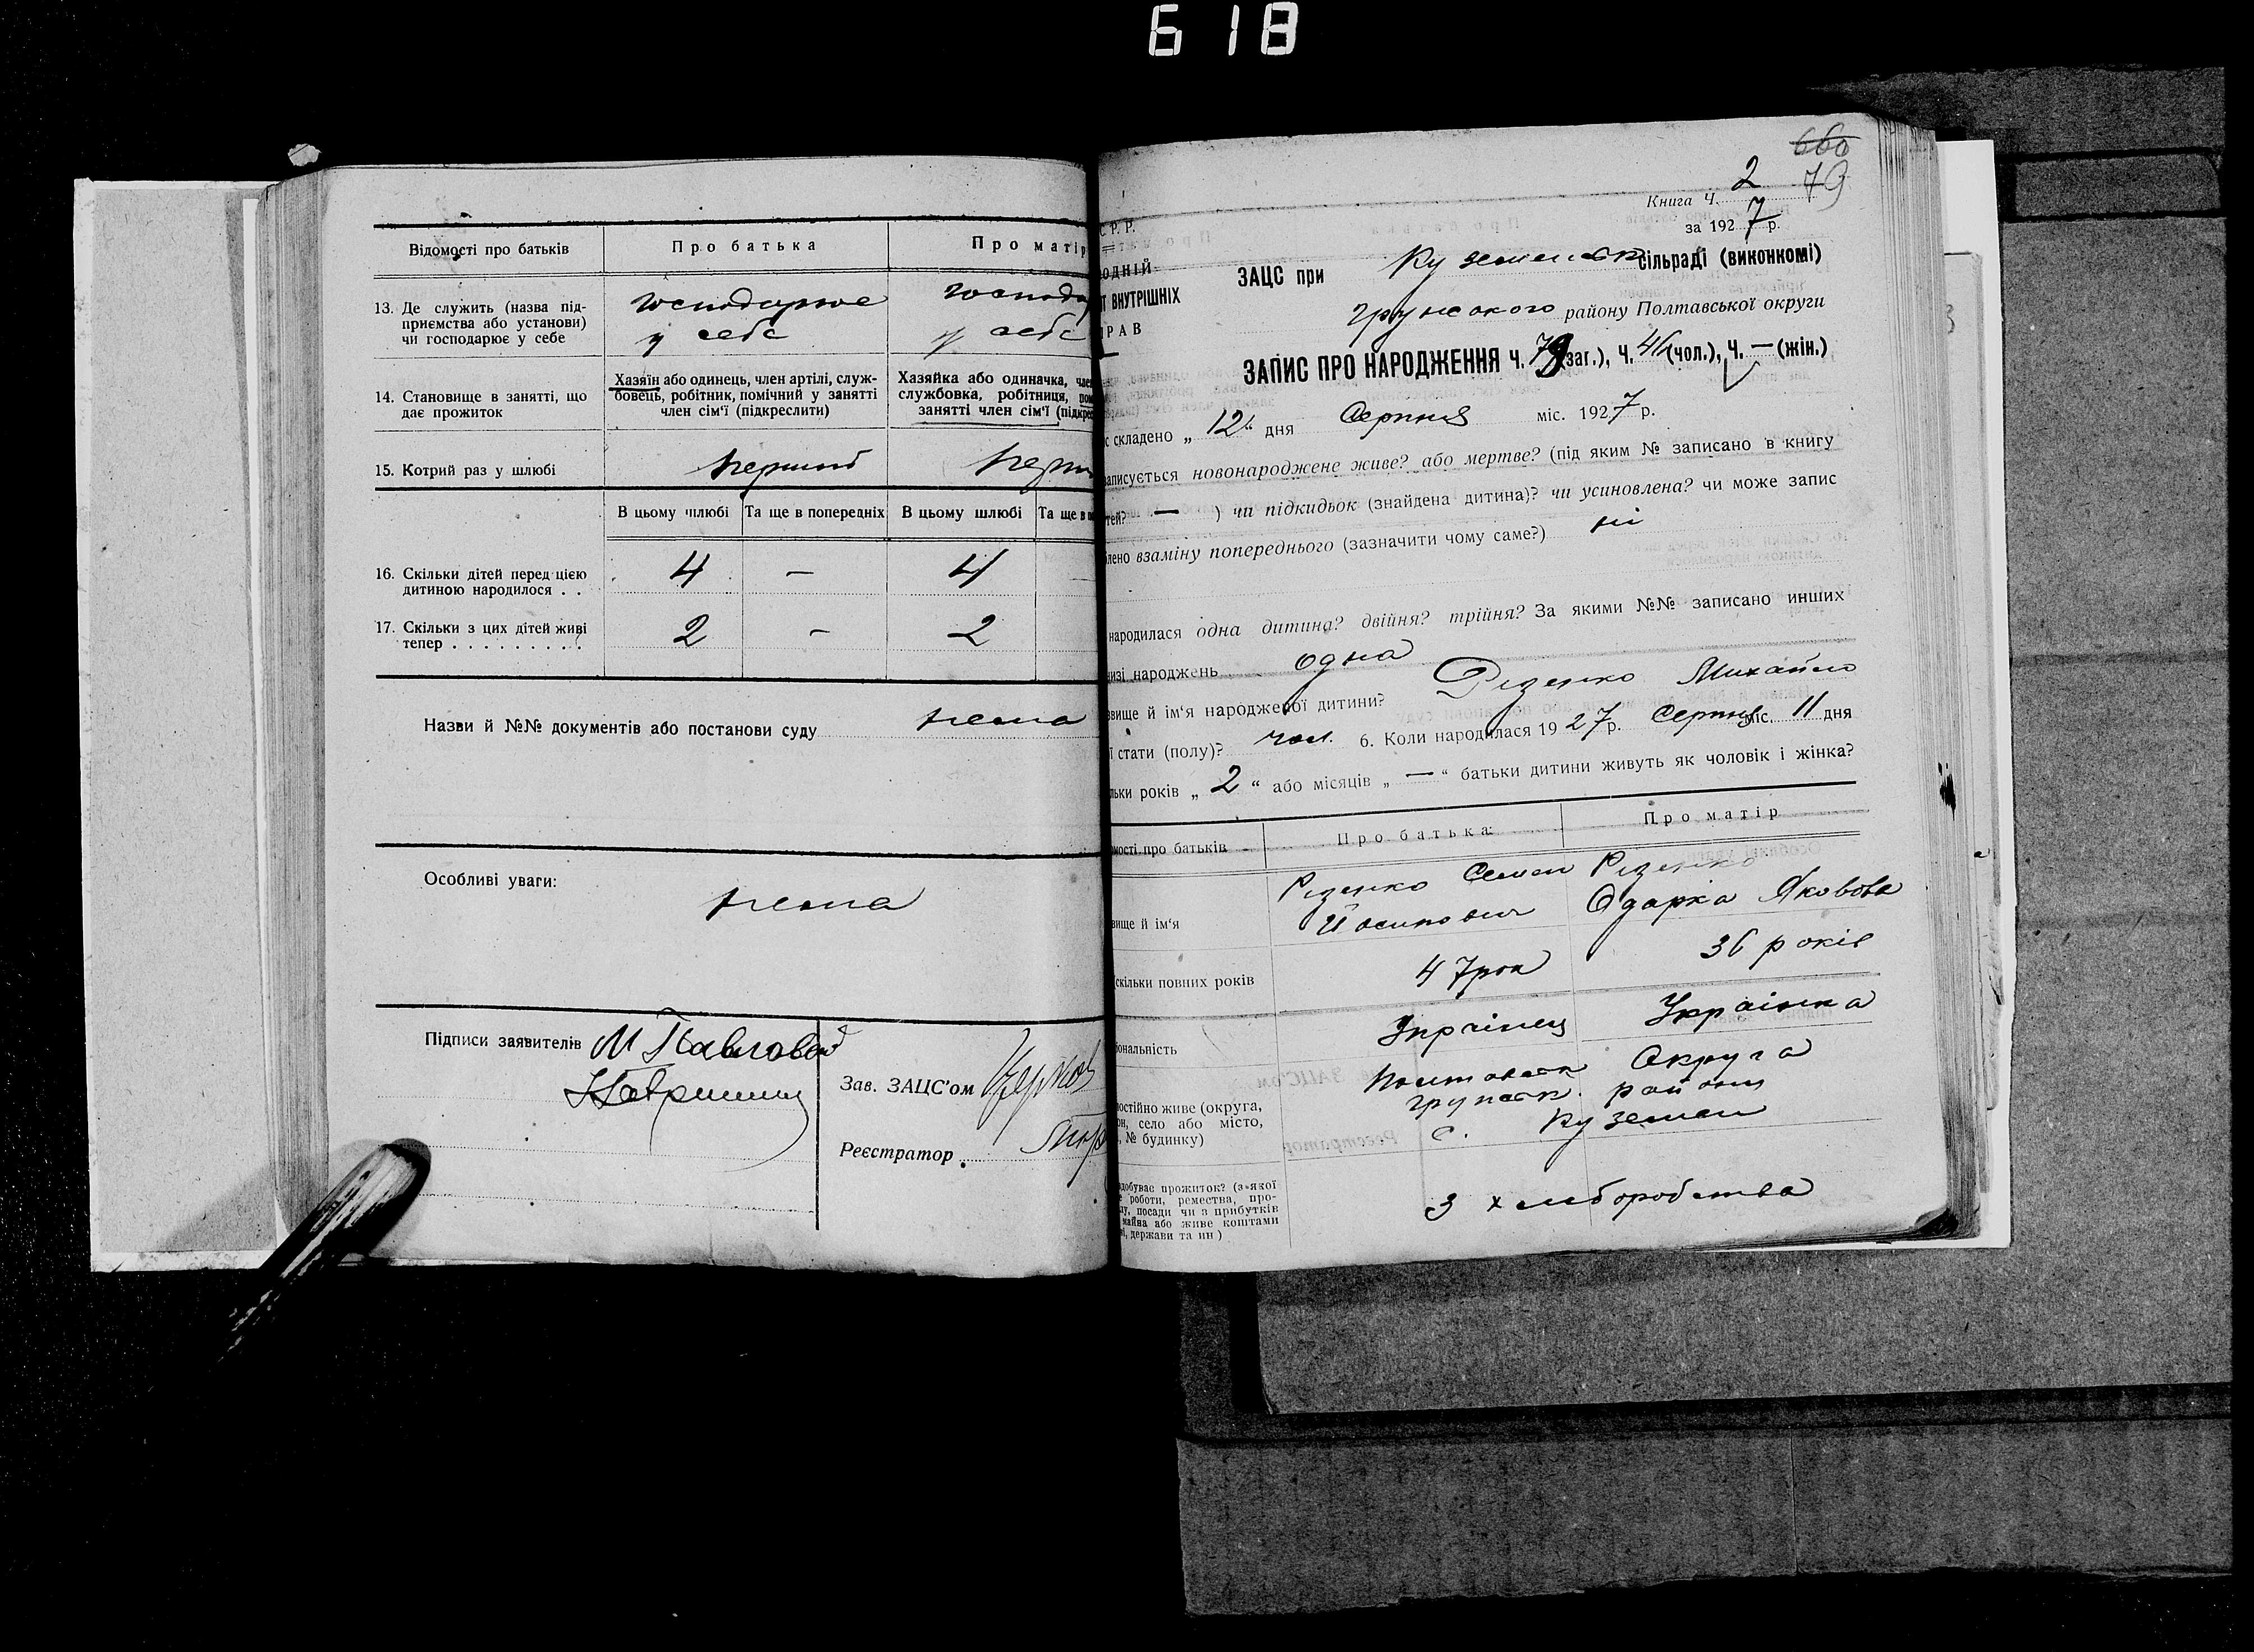 618
Відомості про батьків
Про батька
Про матір
13. Де служить (назва під-
приємства або установи)
чи господарює у себе
господарює
у себе
господа
у себе
14. Становище в занятті, що
дає прожиток
Хазяїн або одинець, член артілі, служ-
бовець, робітник, помічний у занятті
член сім'ї (підкреслити)
Хазяйка або одиначка, член
службовка, робітниця, пом
занятті член сім'ї (підкрес
15. Котрий раз у шлюбі
перший
перш
В цьому шлюбі
Та ще в попередніх
В цьому шлюбі
Та ще в п
16. Скільки дітей перед цією
дитиною народилося . .
4 — 4 —
17. Скільки з цих дітей живі
тепер . . . . . . . . .
2 — 2
Назви й №№ документів або постанови суду нема
Особливі уваги:
нема
Підписи заявителів
Зав. ЗАЦС'ом
Реєстратор
660
79
Книга Ч. 2
за 1927 р.
С Р. Р.
ОДНІЙ
Т ВНУТРІШНІХ
РАВ
ЗАЦС при Куземенськ сільраді (виконкомі)
Грунського району Полтавської округи
ЗАПИС ПРО НАРОДЖЕННЯ Ч. 79 (заг.), Ч. 46 (чол.), Ч. — (жін.)
с складено „ 12 “ дня Серпня міс. 1927 р.
аписується новонароджене живе? або мертве? (під яким № записано в книгу
тей? — ) чи підкидьок (знайдена дитина)? чи усиновлена? чи може запис
лено взаміну попереднього (зазначити чому саме?) ні
народилася одна дитина? двійня? трійня? За якими №№ записано инших
изі народжень одна
звище й ім'я народженої дитини? Різенко Михайло
ї стати (полу)? чол. 6. Коли народилася 1927 р. Серпня міс. 11 дня
льки років „ 2 “ або місяців „ — “ батьки дитини живуть як чоловік і жінка?
мості про батьків
Про батька
Про матір
вище й ім'я
Різенко Семен
Йосипович
Різенко
Одарка Яковова
скільки повних років
47 рок
36 років
іональність
Українець
Українка
остійно живе (округа,
он, село або місто,
, № будинку)
Полтавськ Округа
Грунськ. района
с. Куземен
добуває прожиток? (з якої
е роботи, ремества, про-
ду, посади чи з прибутків
майна або живе коштами
ві, держави та ин)
З хліборобства